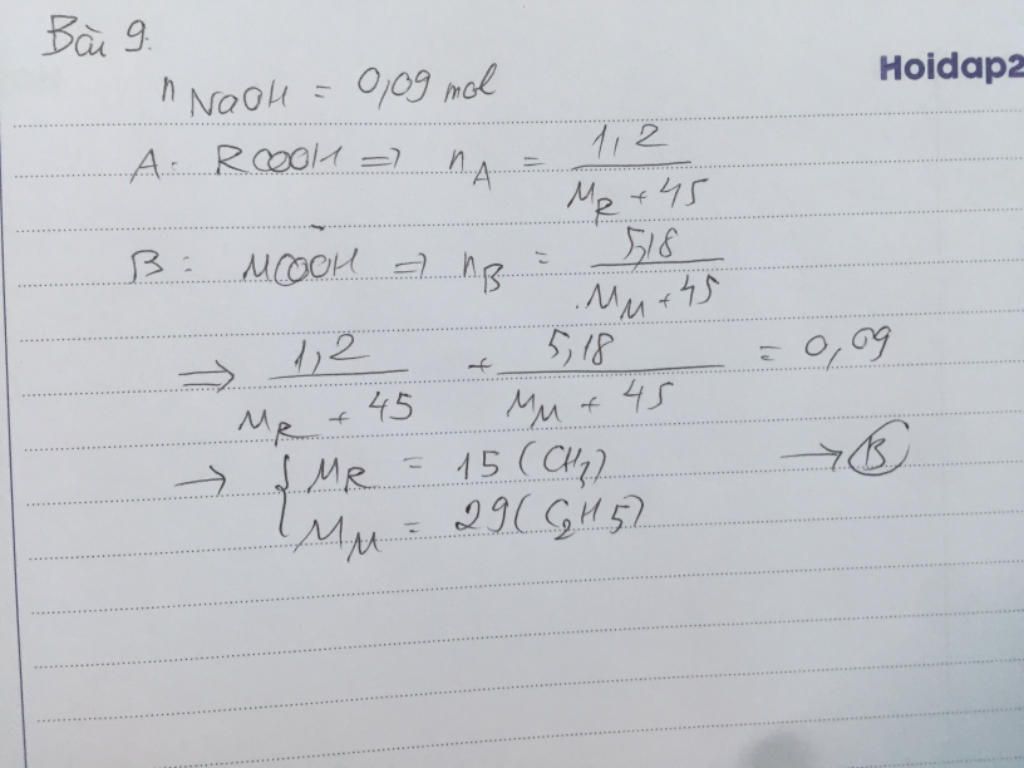 Bài 9.
Hoidap2
n NaOH = 0,09 mol
A: RCOOH => nA = 1,2 / (MR + 45)
B: MCOOH => nB = 5,18 / (MM + 45)
=> 1,2 / (MR + 45) + 5,18 / (MM + 45) = 0,09
→ { MR = 15 (CH3) → B
MM = 29 (C2H5)